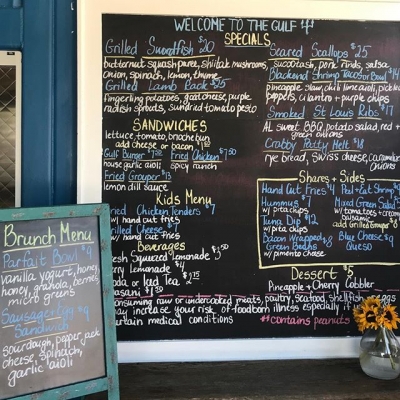 WELCOME TO THE GULF
SPECIALS
Grilled Swordfish $20
butternut squash puree, shiitake mushrooms,
onion, spinach, lemon, thyme
Grilled Lamb Rack $25
fingerling potatoes, goat cheese, purple
radish sprouts, sundried tomato pesto
Seared Scallops $25
succotash, pork rinds, salsa
Blackened Shrimp Tacos or Bowl $14
pineapple slaw, chili lime aioli, pickled
peppers, cilantro + purple chips
Smoked St Louis Ribs $17
AL sweet BBQ, potato salad, red +
green onions
Crabby Patty Melt $18
rye bread, swiss cheese, caramelized
onions
SANDWICHES
lettuce, tomato, brioche bun
add cheese or bacon
Gulf Burger Fried Chicken $7.50
house garlic aioli spicy ranch
Fried Grouper $13
lemon dill sauce
Kids Menu
Fried Chicken Tenders $7
w/ hand cut fries
Grilled Cheese $7
w/ hand cut fries
Beverages
Fresh Squeezed Lemonade $3.50
Lemonade
Soda or Iced Tea
Dasani
Shares + Sides
Hand Cut Fries $4
Hummus $7
w/ pita chips
Tuna Dip $12
w/ pita chips
Bacon Wrapped
Green Beans $8
w/ pimento cheese
Peel + Eat Shrimp
Mixed Green Salad
w/ tomatoes +
balsamic
add Grilled
Blue Cheese
Queso
Dessert $5
Pineapple + Cherry Cobbler
Consuming raw or undercooked meats, poultry, seafood, shellfish, eggs
may increase your risk of foodborn illness especially if
certain medical conditions
#contains peanuts
Brunch Menu
Parfait Bowl $9
vanilla yogurt, honey,
honey, granola, berries,
micro greens
Sausage + Egg $9
Sandwich
sourdough, pepper jack
cheese, spinach,
garlic aioli